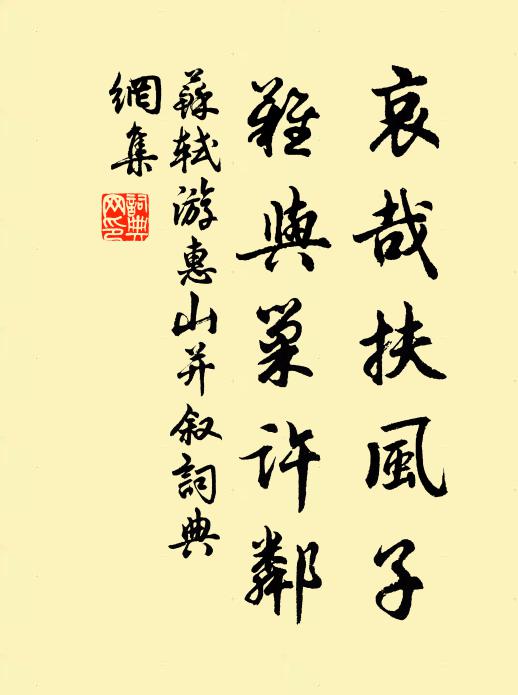 哀哉扶風子
難與巢許鄰
蘇軾游惠山并叙詞典
網集
詞典
网印